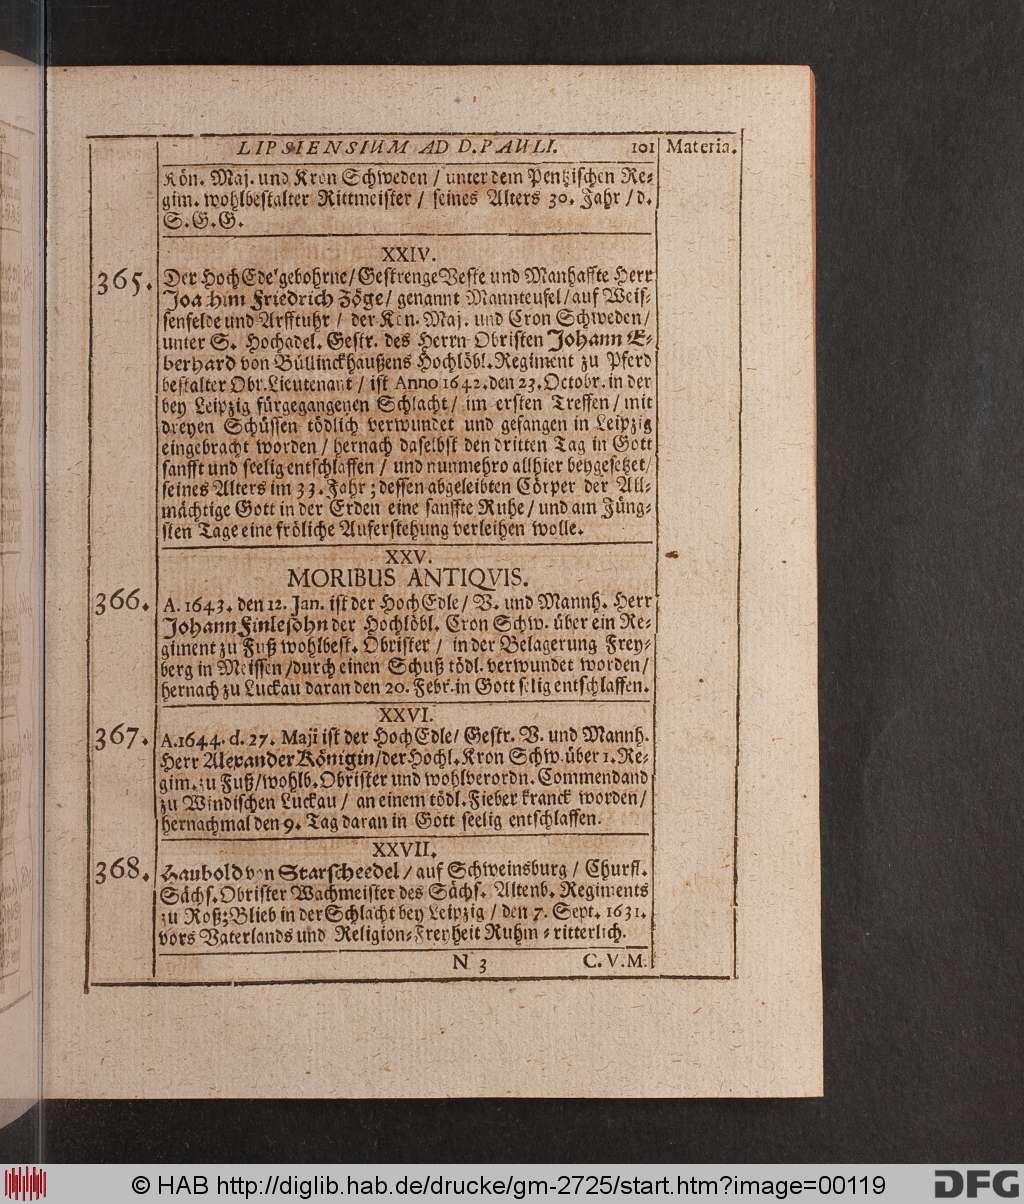 LIPSIENSIUM AD D. PAULI. 101 Materia.
Kön. Maj. und Kron Schweden / unter dem Pentzischen Re-
gim. wohlbestalter Rittmeister / seines Alters 30. Jahr / d.
S. G. G.
XXIV.
365. Der HochEdelgebohrne / Gestrenge Veste und Manhaffte Herr
Joachim Friedrich Zöge / genannt Mannteufel / auf Weis-
senfelde und Arfftuhr / der Kön. Maj. und Cron Schweden /
unter S. Hochadel. Gestr. des Herrn Obristen Johann E-
berhard von Büllinckhaußens Hochlöbl. Regiment zu Pferd
bestalter Obr. Lieutenant / ist Anno 1642. den 23. Octobr. in der
bey Leipzig fürgegangenen Schlacht / im ersten Treffen / mit
dreyen Schüssen tödlich verwundet und gefangen in Leipzig
eingebracht worden / hernach daselbst den dritten Tag in Gott
sanfft und seelig entschlaffen / und nunmehro allhier beygesetzet /
seines Alters im 33. Jahr ; dessen abgeleibten Cörper der All-
mächtige Gott in der Erden eine sanffte Ruhe / und am Jüng-
sten Tage eine fröliche Auferstehung verleihen wolle.
XXV.
MORIBUS ANTIQVIS.
366. A. 1643. den 12. Jan. ist der HochEdle / V. und Mannh. Herr
Johann Finlesohn der Hochlöbl. Cron Schw. über ein Re-
giment zu Fuß wohlbest. Obrister / in der Belagerung Frey-
berg in Meissen / durch einen Schuß tödl. verwundet worden /
hernach zu Luckau daran den 20. Febr. in Gott selig entschlaffen.
XXVI.
367. A. 1644. d. 27. Maji ist der HochEdle / Gestr. V. und Mannh.
Herr Alexander Königin / der Hochl. Kron Schw. über 1. Re-
gim. zu Fuß / wohlb. Obrister und wohlverordn. Commendand
zu Windischen Luckau / an einem tödl. Fieber kranck worden /
hernachmal den 9. Tag daran in Gott seelig entschlaffen.
XXVII.
368. Haubold von Starscheedel / auf Schweinsburg / Churfl.
Sächs. Obrister Wachmeister des Sächs. Altenb. Regiments
zu Roß; Blieb in der Schlacht bey Leipzig / den 7. Sept. 1631.
vors Vaterlands und Religion-Freyheit Ruhm-ritterlich.
N 3 C. V. M.
© HAB http://diglib.hab.de/drucke/gm-2725/start.htm?image=00119
DFG